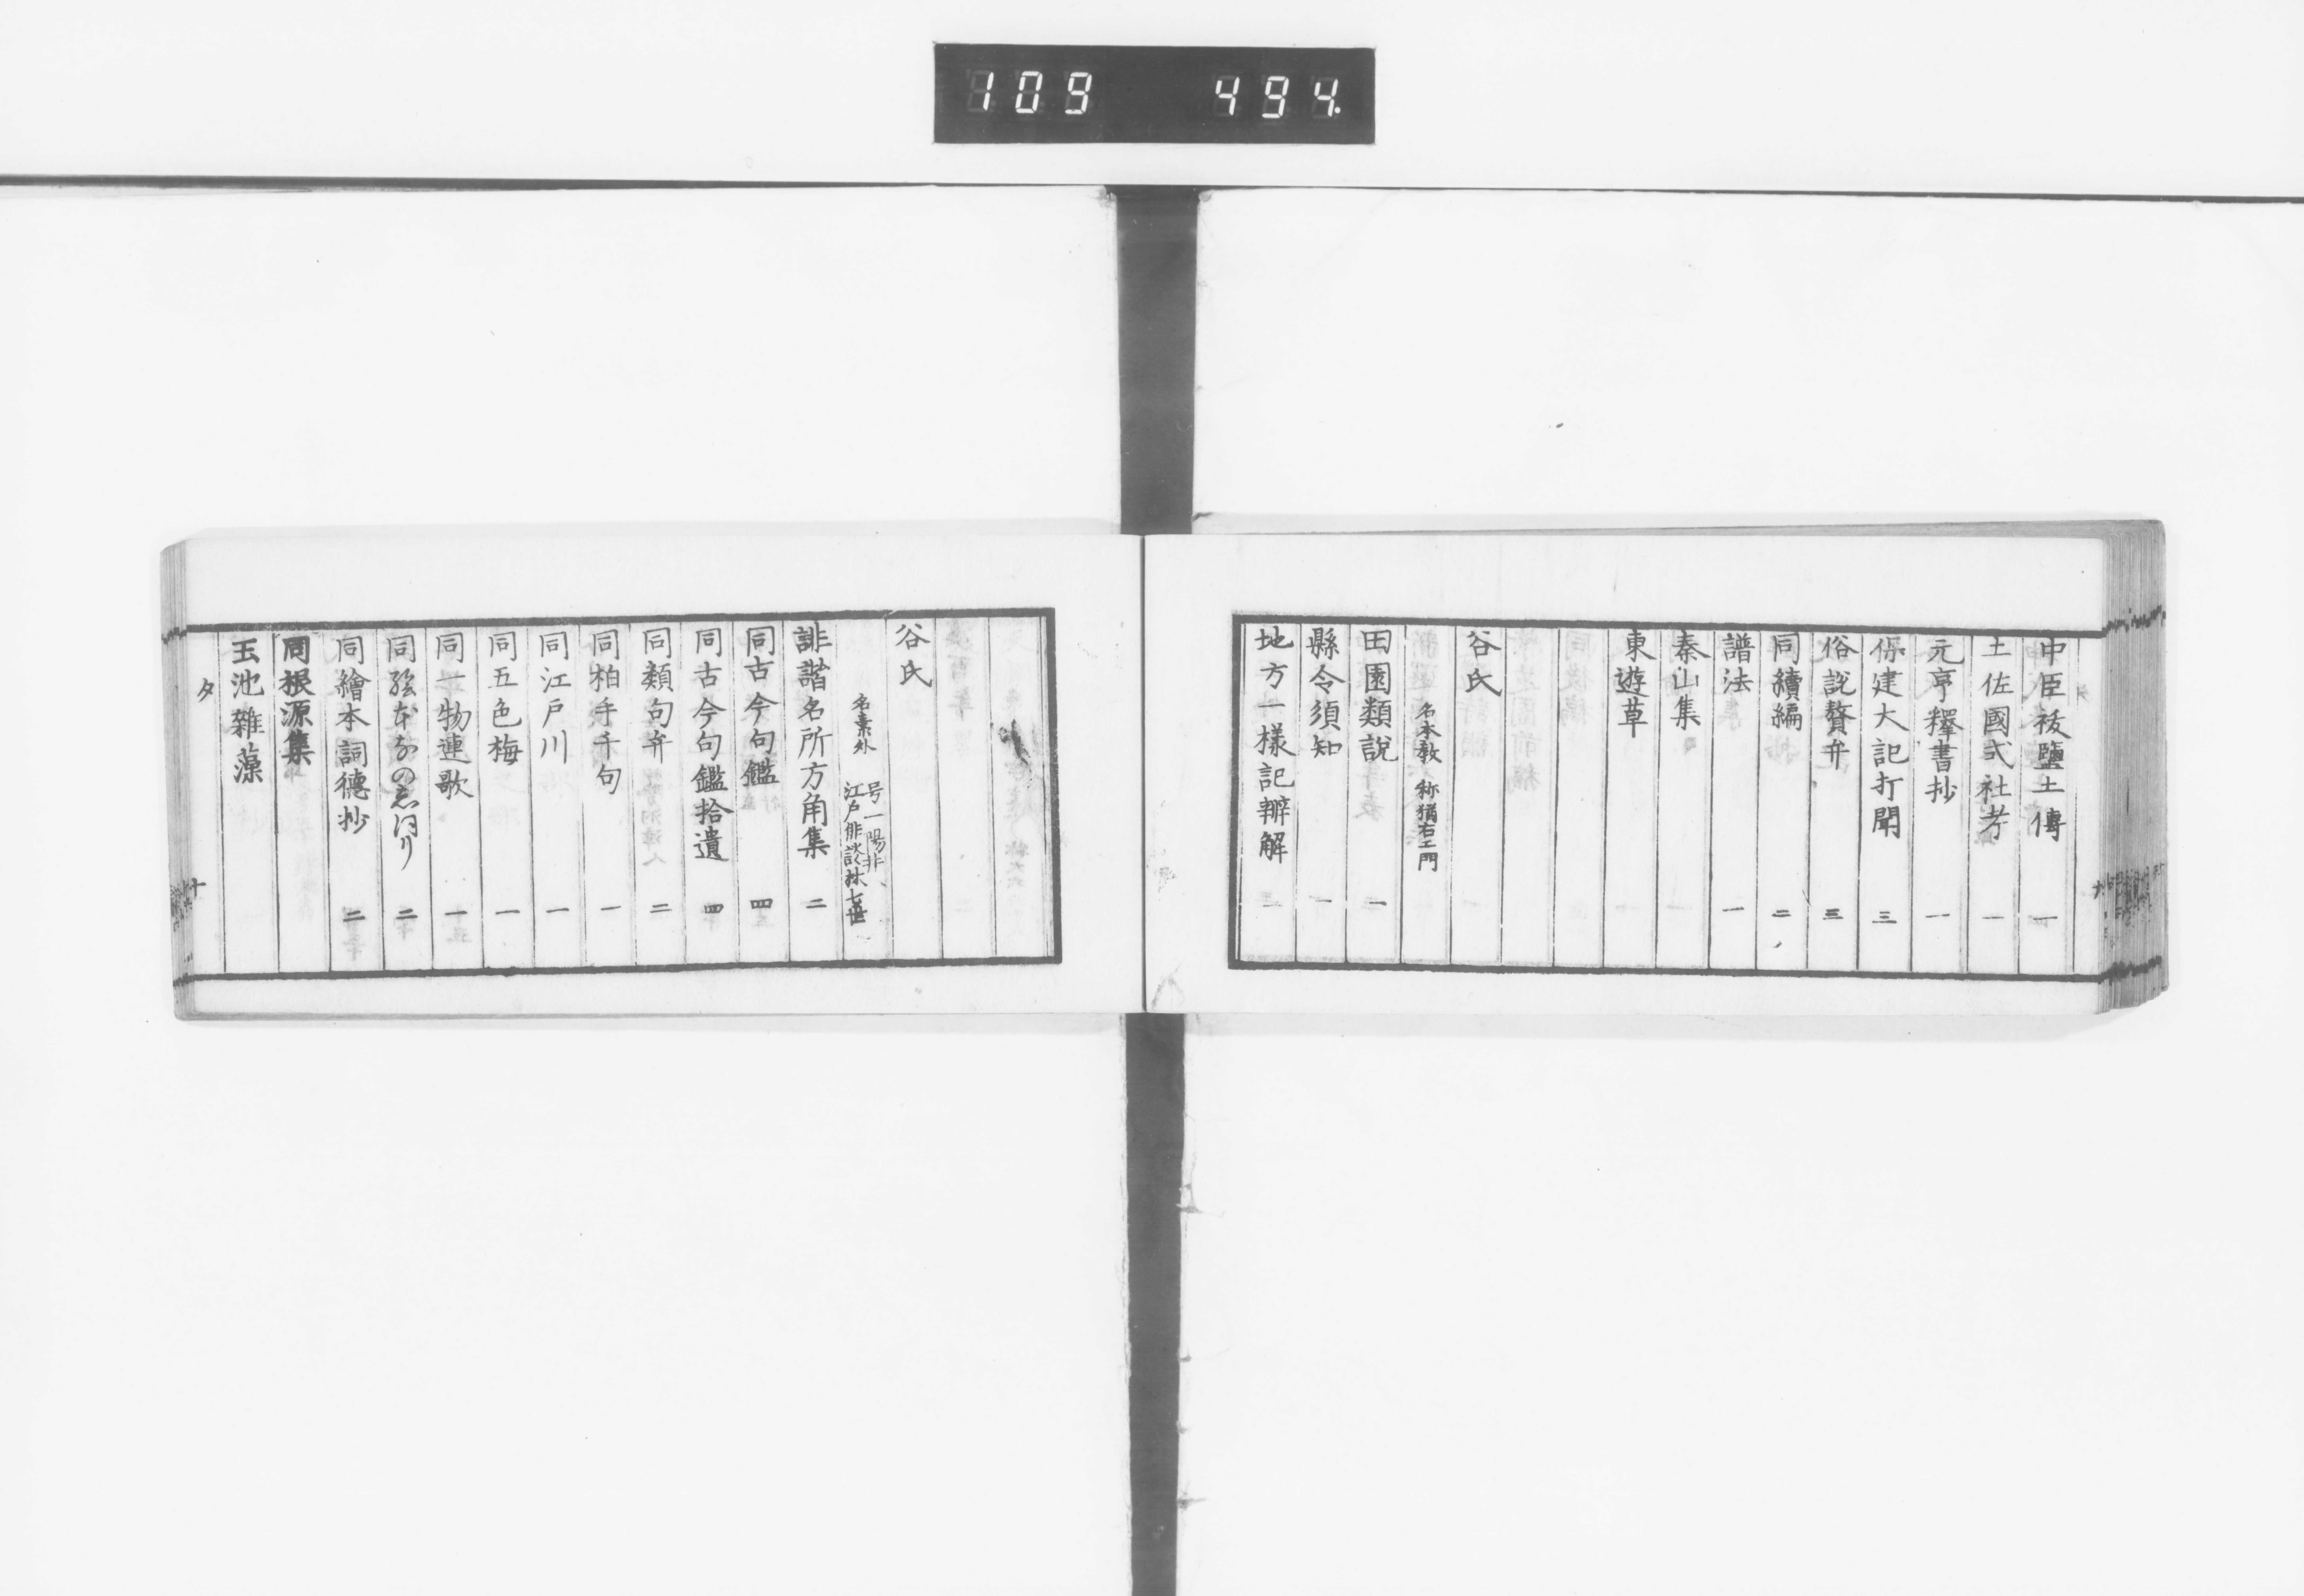 109 494.
中臣祓鹽土傳 一
土佐國式社考 一
元亨釋書抄 一
保建大記打聞 三
俗説贅弁 三
同續編 二
譜法 一
秦山集
東遊草
谷氏
名本教 称猪右エ門
田園類説 一
縣令須知 一
地方一樣記辨解 二
谷氏
名素外 号一陽井 江戸俳談林七世
誹諧名所方角集 二
同古今句鑑 四
同古今句鑑拾遺 四
同類句弁 二
同柏手千句 一
同江戸川 一
同五色梅 一
同一物連歌 一
同 二
同繪本詞德抄 二
同根源集
玉池雜藻
タ